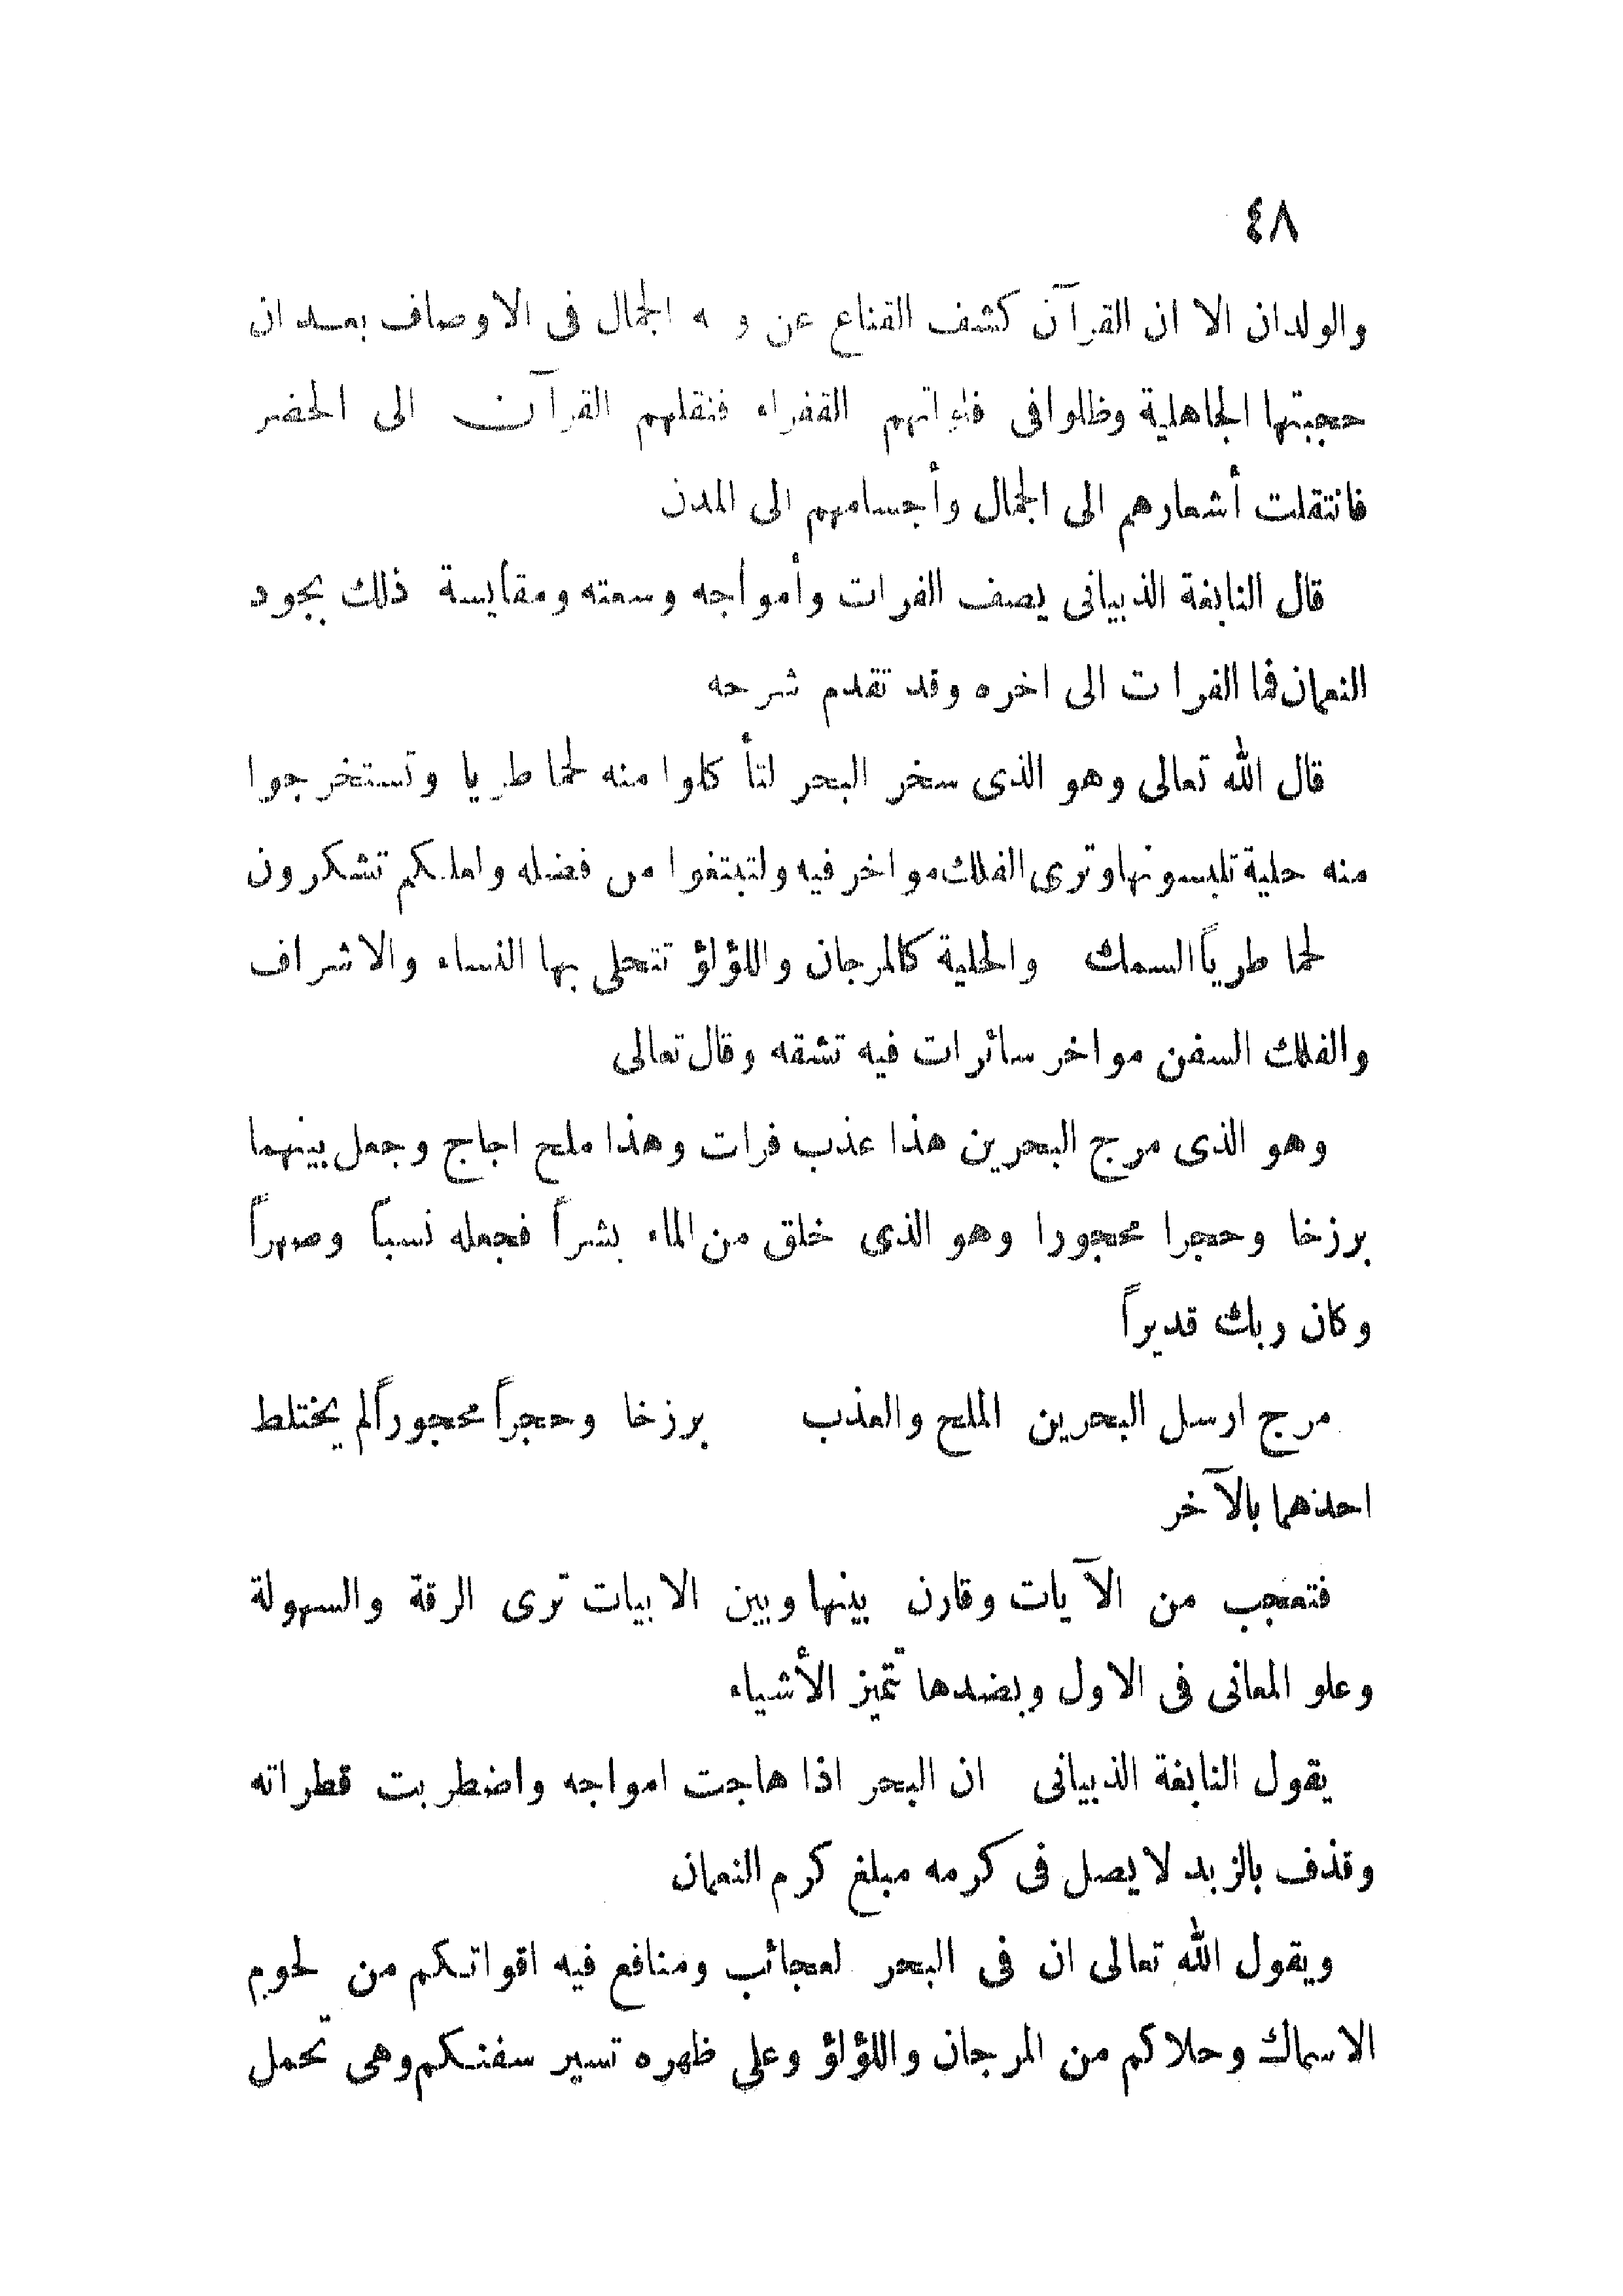 ٤٨
والولدان الا ان القرآن كشف القناع عن الجمال فى الاوصاف بعد ان
حجبتها الجاهلية وظلوا فى القفراء فنقلهم القرآن الى الحضر
فانتقلت أشعارهم الى الجمال وأجسامهم الى المدن
قال النابغة الذبيانى يصف الفرات وأمواجه وسعته ومقايسة ذلك بجود
النعمان فما الفرات الى اخره وقد تقدم شرحه
قال الله تعالى وهو الذى سخر البحر لتأكلوا منه لحما طريا وتستخرجوا
منه حلية تلبسونها وترى الفلك مواخر فيه ولتبتغوا من فضله ولعلكم تشكرون
لحما طرياً السمك والحلية كالمرجان واللؤلؤ تتحلى بها النساء والاشراف
والفلك السفن مواخر سائرات فيه تشقه وقال تعالى
وهو الذى مرج البحرين هذا عذب فرات وهذا ملح اجاج وجعل بينهما
برزخا وحجرا محجورا وهو الذى خلق من الماء بشراً فجعله نسباً وصهراً
وكان ربك قديراً
مرج ارسل البحرين الملح والعذب برزخا وحجراً محجوراً لم يختلط
احدهما بالآخر
فتعجب من الآيات وقارن بينها وبين الابيات ترى الرقة والسهولة
وعلو المعانى فى الاول وبضدها تتميز الأشياء
يقول النابغة الذبيانى ان البحر اذا هاجت امواجه واضطربت قطراته
وقذف بالزبد لا يصل فى كرمه مبلغ كرم النعمان
ويقول الله تعالى ان فى البحر لعجائب ومنافع فيه اقواتكم من لحوم
الاسماك وحلاكم من المرجان واللؤلؤ وعلى ظهره تسير سفنكم وهى تحمل